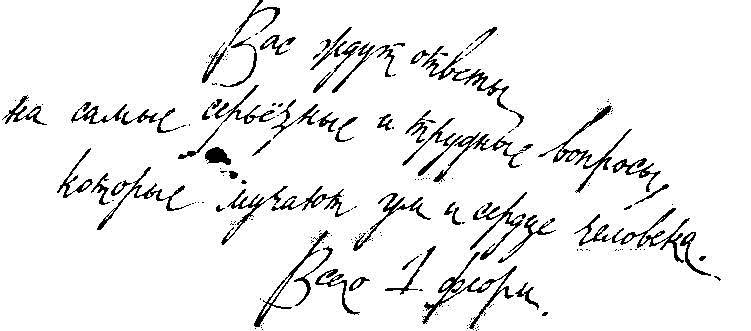 Вас ждут ответы
на самые серьёзные и трудные вопросы,
которые мучают ум и сердце человека.
Всего 1 флорин.